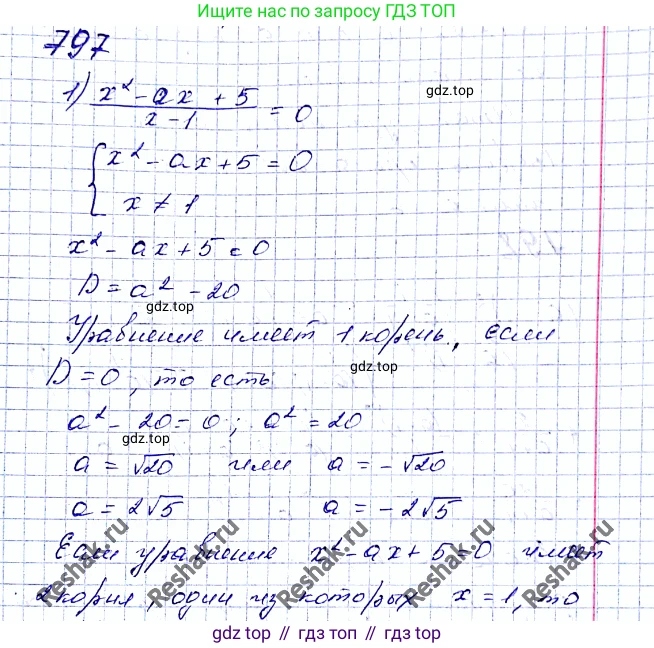 Ищите нас по запросу ГДЗ ТОП
797
1) x² - ax + 5 / x - 1 = 0
gdz.top
{ x² - ax + 5 = 0
x ≠ 1
x² - ax + 5 = 0
D = a² - 20
gdz.top
Уравнение имеет 1 корень, если
gdz.top
D = 0, то есть
a² - 20 = 0; a² = 20
gdz.top
a = √20 или a = -√20
a = 2√5 a = -2√5
Если уравнение x² - ax + 5 = 0 имеет
2 корня, один из которых x = 1, то
Reshak.ru
Reshak.ru
Reshak.ru
Reshak.ru
Reshak.ru
gdz top // гдз топ // gdz.top